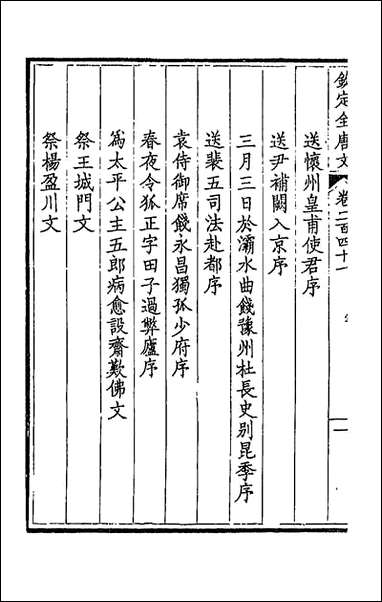 欽定全唐文 卷二百四十一 一
送懷州皇甫使君序
送尹補闕入京序
三月三日於灞水曲餞豫州杜長史别昆季序
送裴五司法赴都序
袁侍御席餞永昌獨孤少府序
春夜令狐正字田子過弊廬序
為太平公主五郎病愈設齋歎佛文
祭王城門文
祭楊盈川文